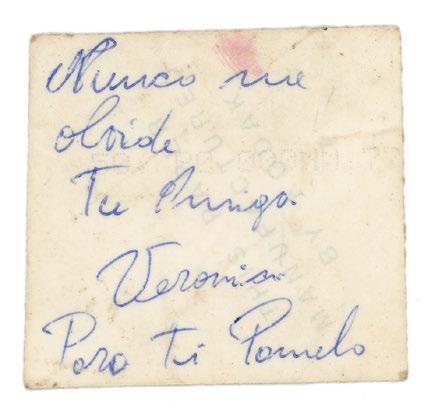 Nunca me
olvide
Tu Amiga
Veronica
Para Ti Pamelo